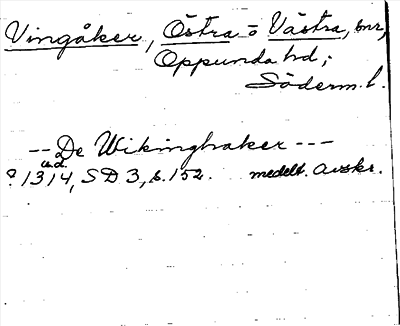 Vingåker, Östra o Västra, snr,
Oppunda hd,
Söderm. l.
-- De Wikinghaker ---
u.d.
? 1314, SD 3, s. 152. medelt. avskr.